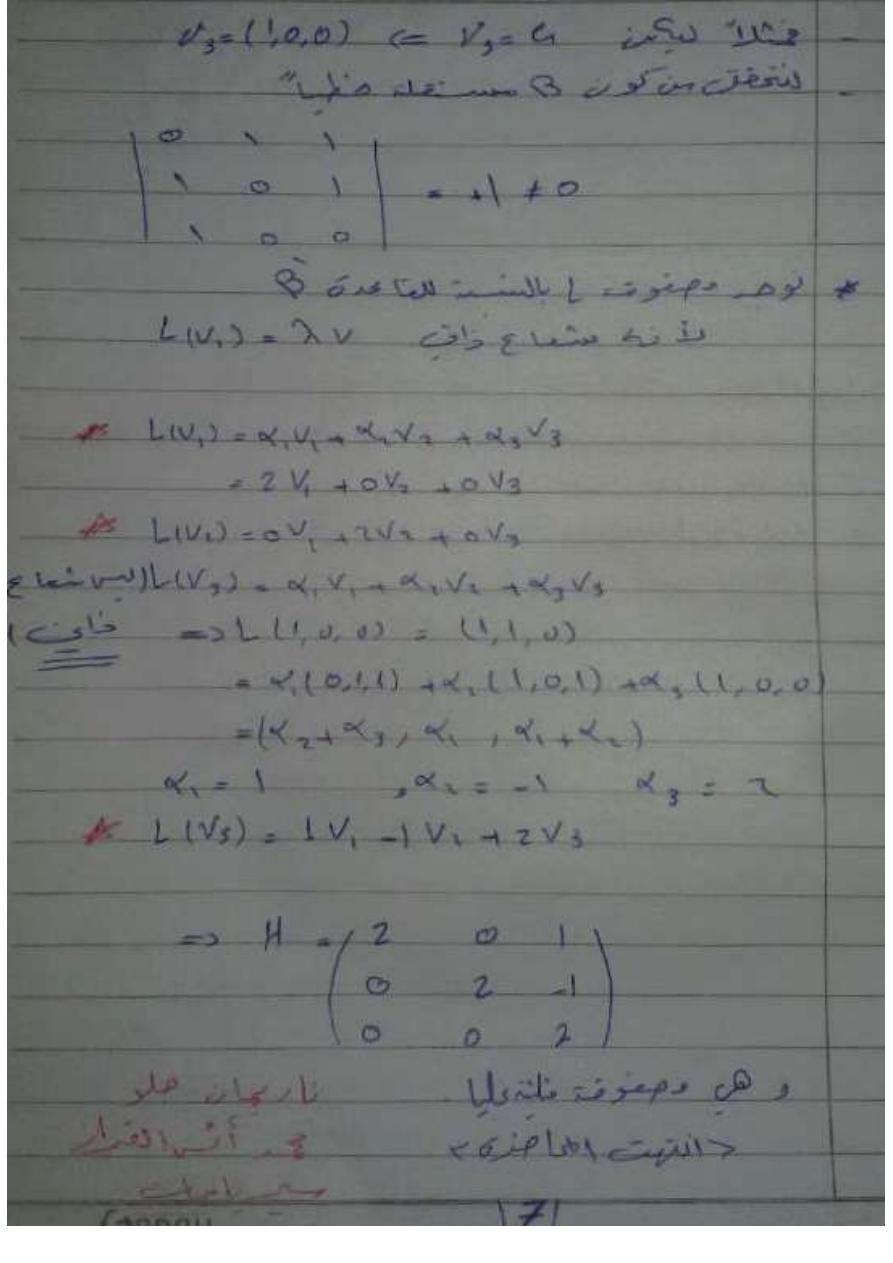 - فمثلاً ليكن V₃ = e₁ => V₃ = (1,0,0)
- لنتحقق من كون B مستقلة خطياً
| 0 1 1 |
| 1 0 1 | = +1 ≠ 0
| 1 0 0 |
* نوجد مصفوفة L بالنسبة للقاعدة B
لأنه شعاع ذاتي L(V₁) = λV
L(V₁) = α₁V₁ + α₂V₂ + α₃V₃
= 2V₁ + 0V₂ + 0V₃
L(V₂) = 0V₁ + 2V₂ + 0V₃
L(V₃) = α₁V₁ + α₂V₂ + α₃V₃ (ليس شعاع
ذاتي) => L(1,0,0) = (1,1,0)
= α₁(0,1,1) + α₂(1,0,1) + α₃(1,0,0)
= (α₂+α₃, α₁, α₁+α₂)
α₁ = 1 , α₂ = -1 α₃ = 2
L(V₃) = 1V₁ - 1V₂ + 2V₃
=> H = ( 2 0 1
0 2 -1
0 0 2 )
و هي مصفوفة مثلثية عليا ناريمان حلو
<انتهت المحاضرة> محمد أنس القزاز
|7|